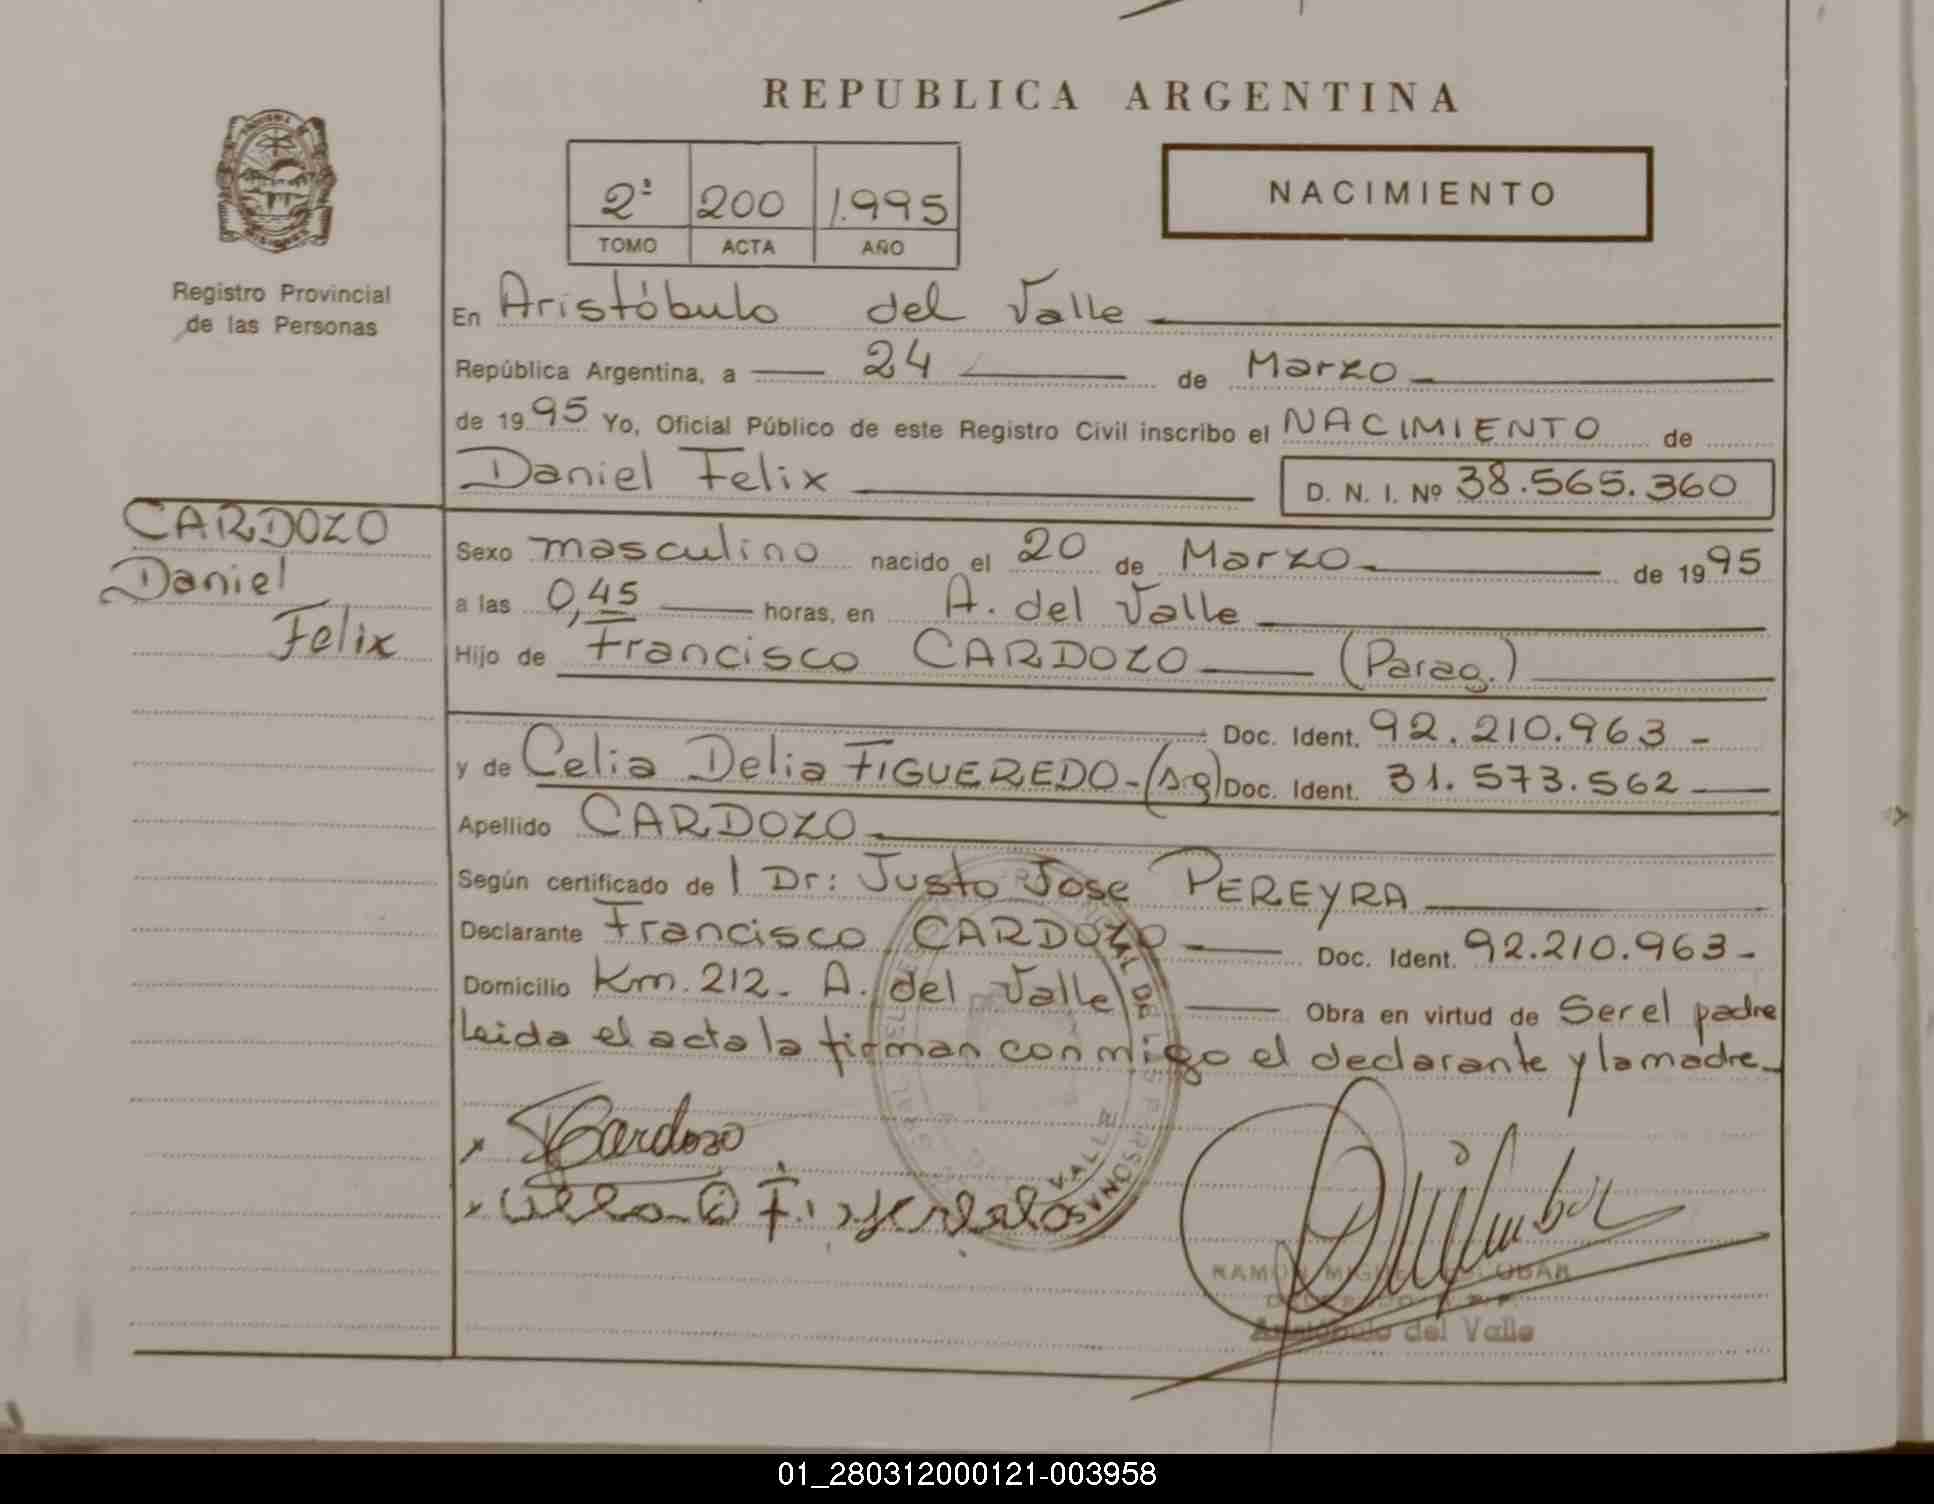 REPUBLICA ARGENTINA
2ª 200 1.995
TOMO ACTA AÑO
NACIMIENTO
Registro Provincial
de las Personas
En Aristóbulo del Valle
República Argentina, a 24 de Marzo
de 1995 Yo, Oficial Público de este Registro Civil inscribo el NACIMIENTO de
Daniel Felix
D. N. I. Nº 38.565.360
CARDOZO
Daniel
Felix
Sexo masculino nacido el 20 de Marzo de 1995
a las 0,45 horas, en A. del Valle
Hijo de Francisco CARDOZO (Parag.)
Doc. Ident. 92.210.963 -
y de Celia Delia FIGUEREDO - Doc. Ident. 31.573.562
Apellido CARDOZO
Según certificado de l Dr: Justo Jose PEREYRA
Declarante Francisco CARDOZO Doc. Ident. 92.210.963 -
Domicilio Km. 212. A. del Valle Obra en virtud de Ser el padre
Leida el acta la firman conmigo el declarante y la madre
Cardozo
RAMON MIGUEL ESCOBAR
Aristóbulo del Valle
01_280312000121-003958